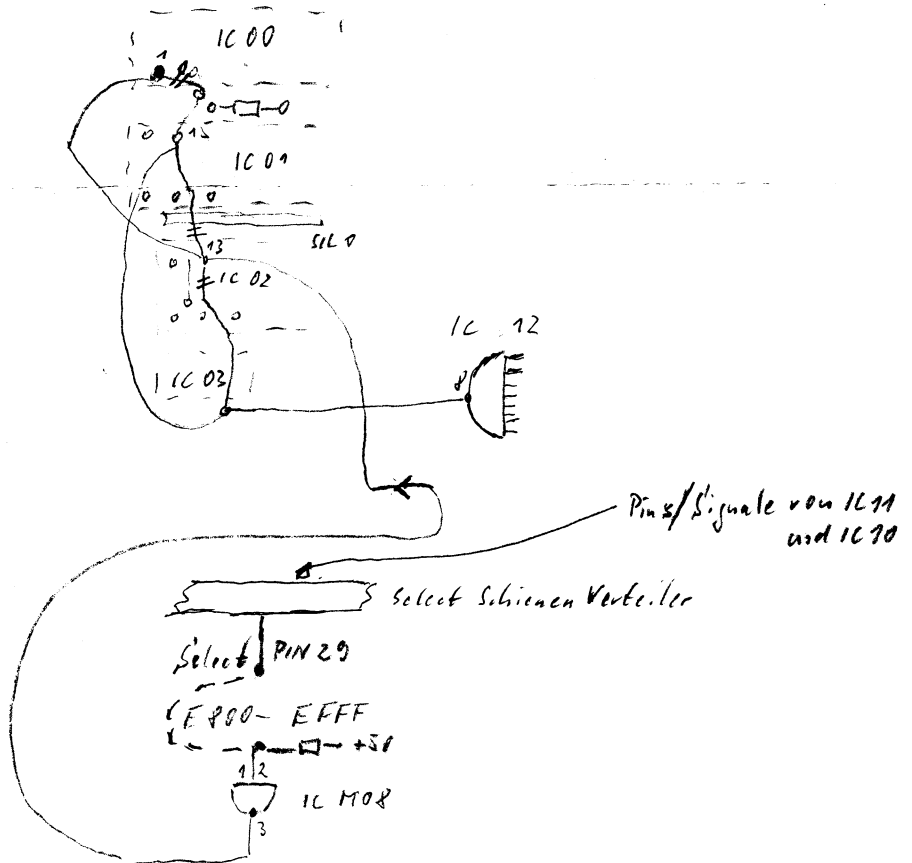 IC 00
1
15
IC 01
SIL 0
13
IC 02
IC 12
8
IC 03
Pins/Signale von IC11
und IC10
Select Schienen Verteiler
Select PIN 29
E800- EFFF
+5V
1 2
IC M08
3